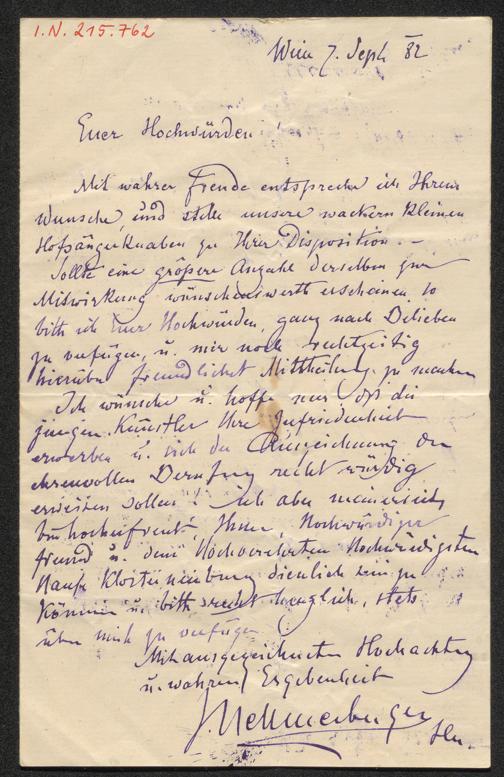 I.N. 215.762
Wien 7. Sept. 82
Euer Hochwürden!
Mit wahrer Freude entspreche ich Ihrem
Wunsche, und stelle unsere wackern kleinen
Hofsängerknaben zu Ihrer Disposition. –
Sollte eine größere Anzahl derselben zur
Mitwirkung wünschenswerth erscheinen, so
bitte ich Euer Hochwürden, ganz nach Belieben
zu verfügen, u. mir noch rechtzeitig
hierüber freundlichst Mittheilung zu machen
Ich wünsche u. hoffe nur daß die
jungen Künstler Ihre Zufriedenheit
erwerben u. sich der Auszeichnung der
ehrenvollen Berufung recht würdig
erweisen sollen! Ich aber meinerseits
bin hocherfreut, Ihnen, Hochwürdiger
Freund u. dem Hochverehrten Hochwürdigsten
Klosterneuburg dienlich sein zu
können u. bitte recht herzlich, stets
über mich zu verfügen
Mit ausgezeichneter Hochachtung
u. wahrer Ergebenheit
J. Hellmesberger